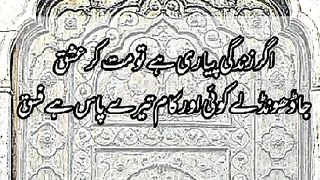 اگر زندگی پیاری ہے تو مت کر عشق
جا ڈھونڈلے کوئی اور کام تیرے پاس ہے فسق